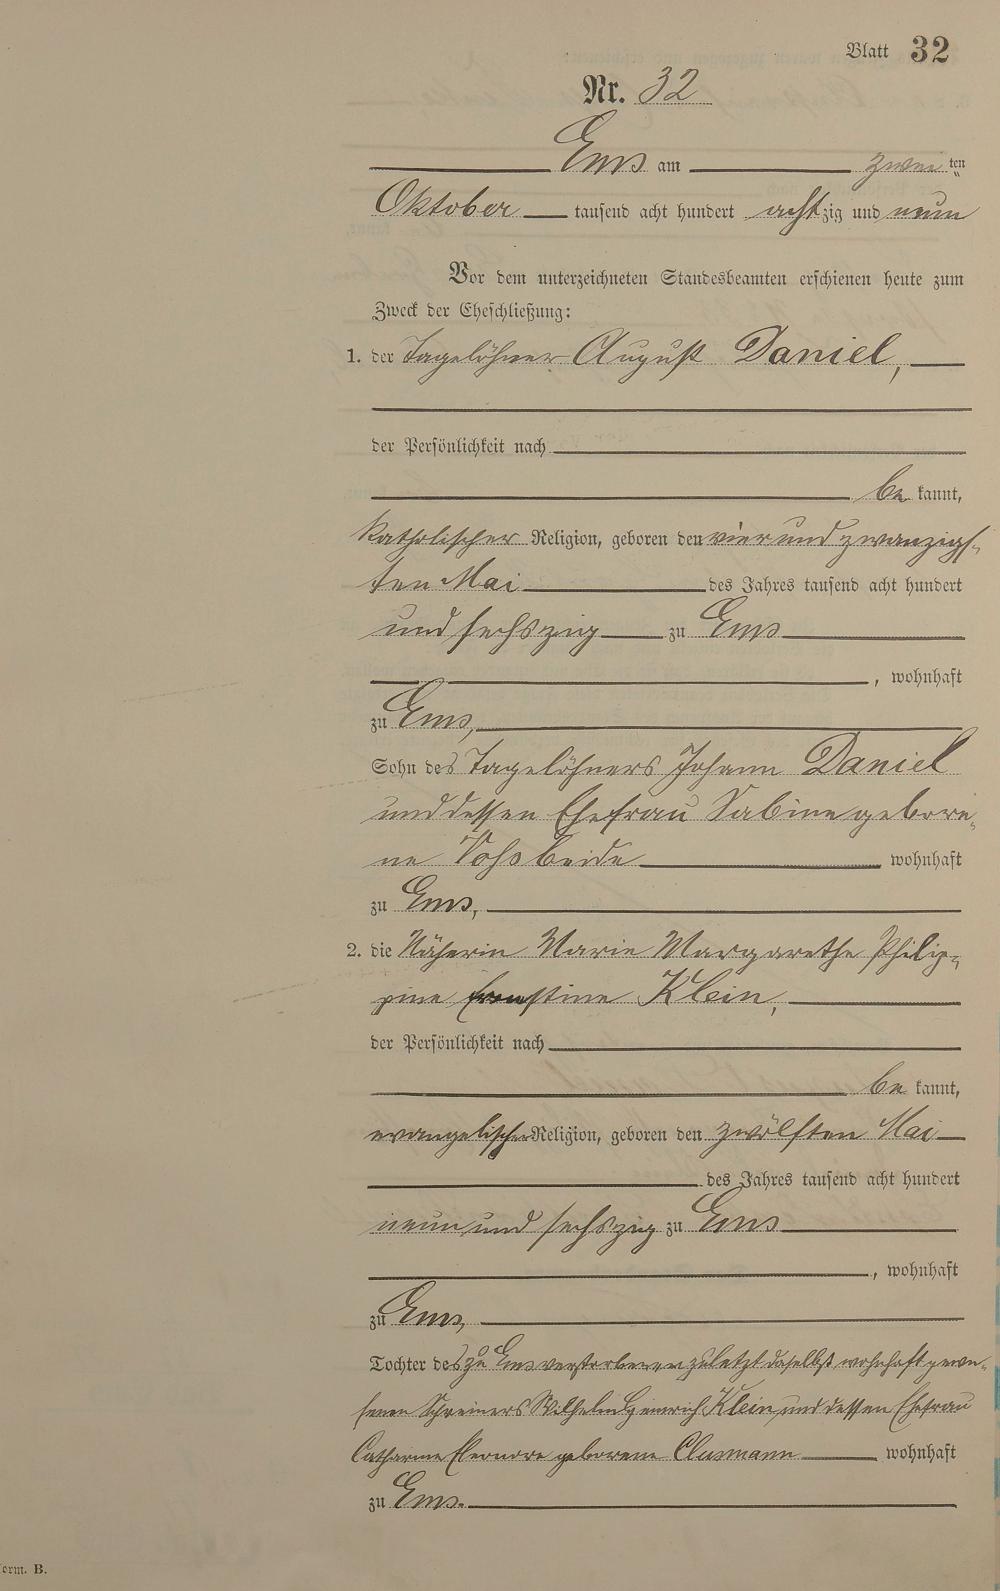 Blatt 32
Nr. 32
Ems am zwei ten
Oktober tausend acht hundert achtzig und neun
Vor dem unterzeichneten Standesbeamten erschienen heute zum
Zweck der Eheschließung:
1. der Tagelöhner August Daniel,
der Persönlichkeit nach
be kannt,
katholischer Religion, geboren den vier und zwanzigs-
ten Mai des Jahres tausend acht hundert
und sechszig zu Ems
, wohnhaft
zu Ems,
Sohn des Tagelöhners Johann Daniel
und dessen Ehefrau Sabine gebore-
ne beide wohnhaft
zu Ems,
2. die Näherin Marie Margarethe Philip-
pine Ernstine Klein,
der Persönlichkeit nach
be kannt,
evangelischer Religion, geboren den zwölften Mai
des Jahres tausend acht hundert
neun und sechszig zu Ems
, wohnhaft
zu Ems,
Tochter des zu Ems verstorbenen zuletzt daselbst wohnhaft gewe-
senen Schreiners Wilhelm Heinrich Klein und dessen Ehefrau
Catharine Eleonore geborene Clusmann wohnhaft
zu Ems.
orm. B.